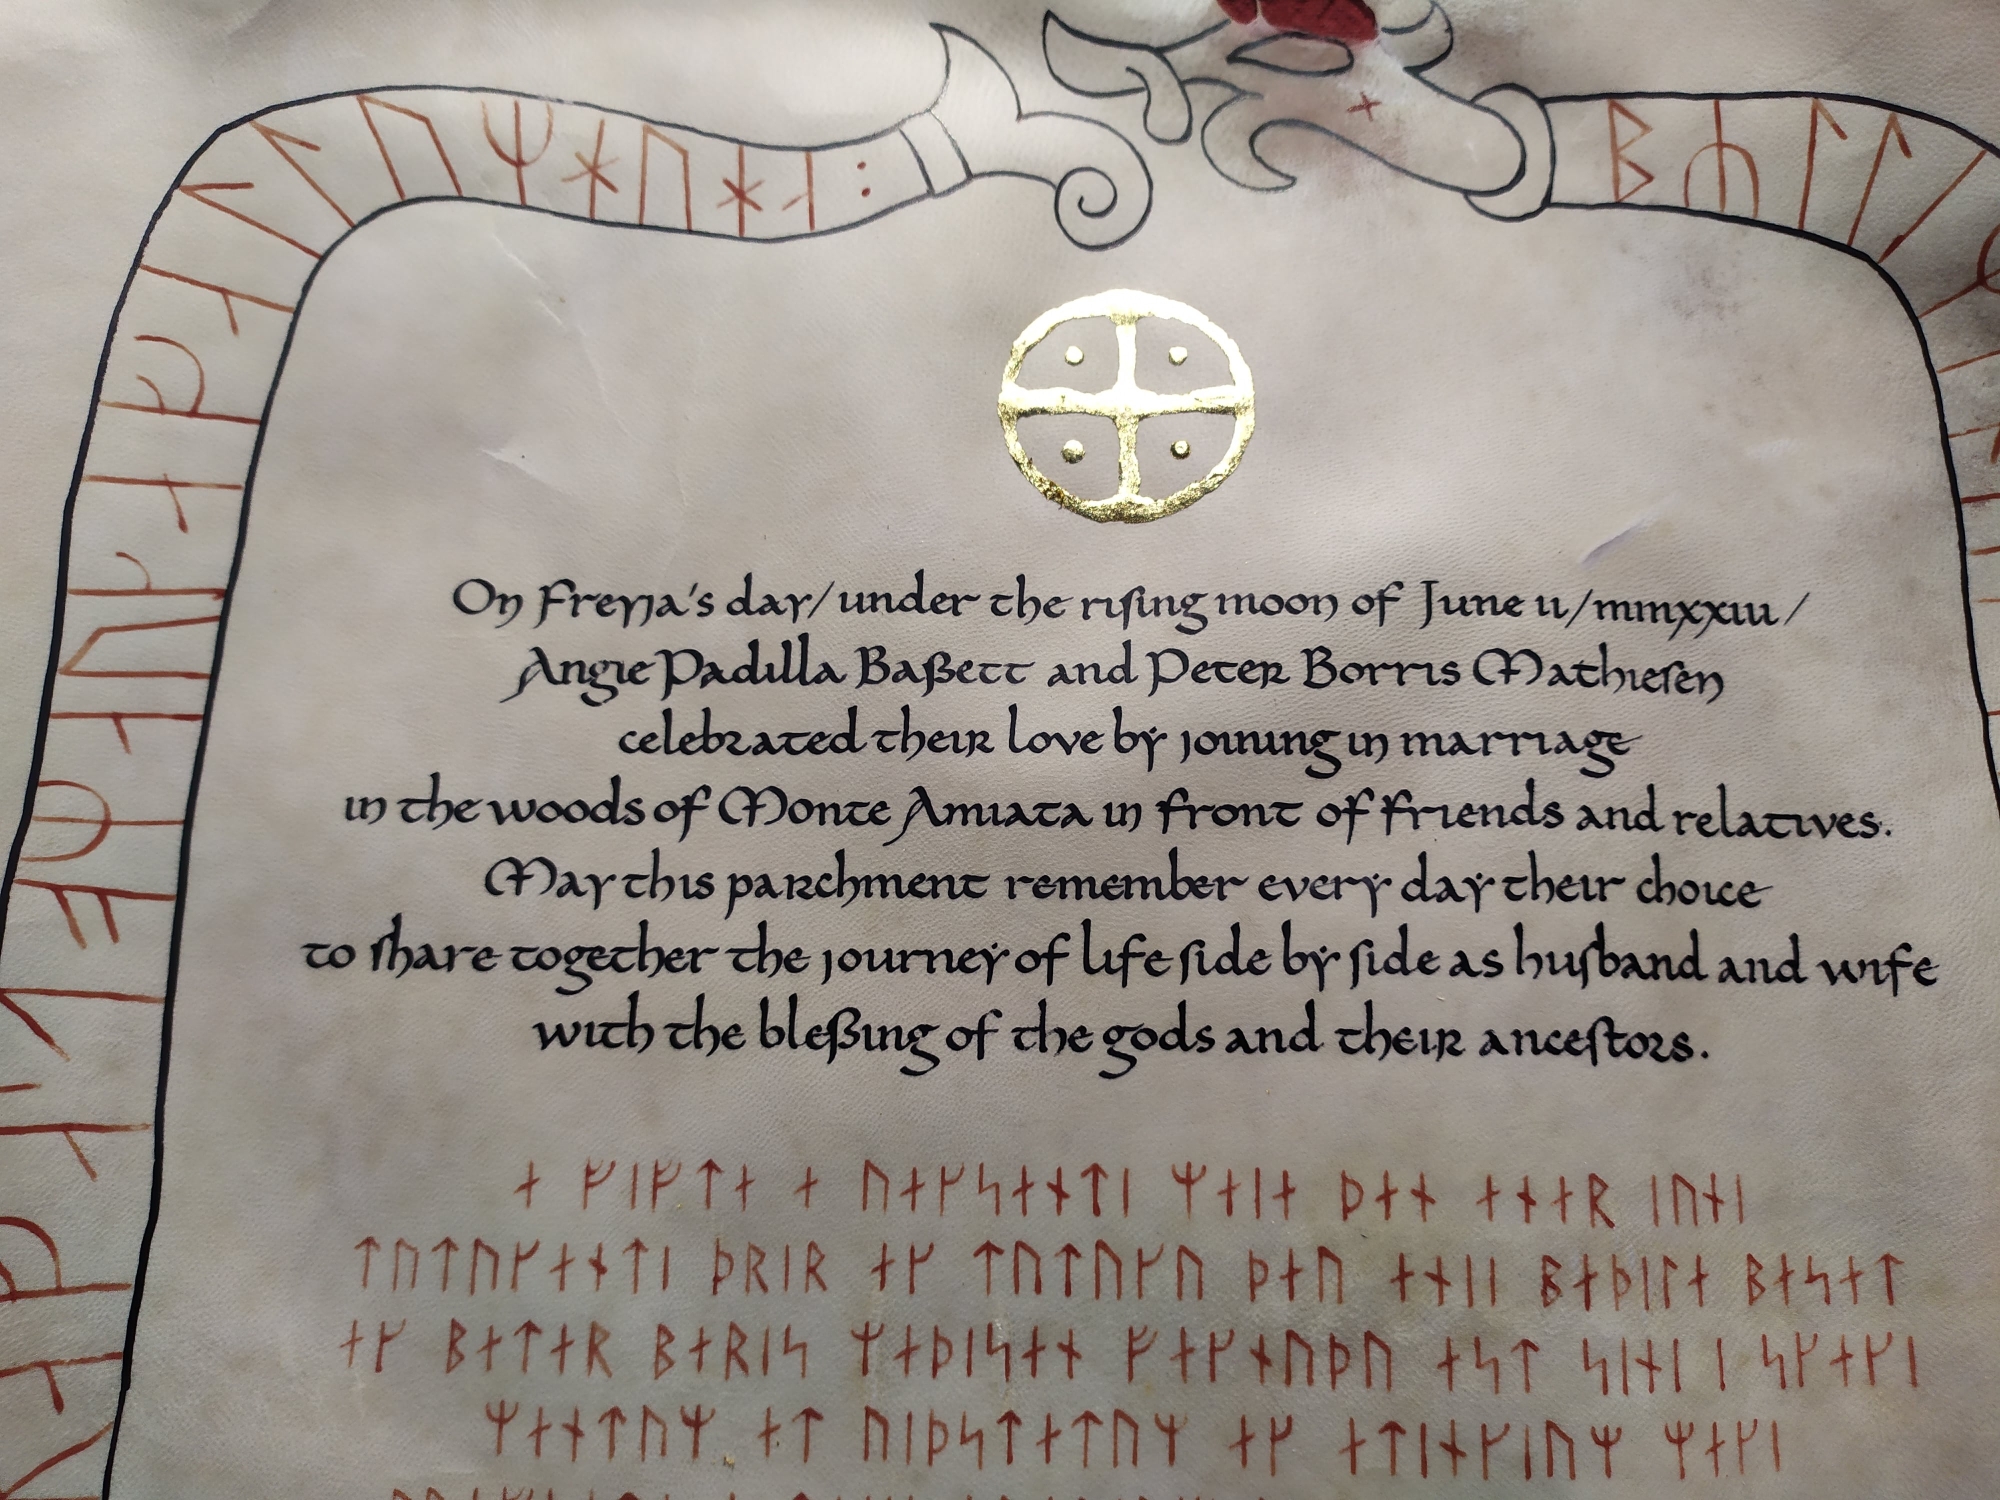 On Freyja's day/under the riſing moon of June ii/mmxxiii/
Angie Padilla Baßett and Peter Borris Mathieſen
celebrated their love by joining in marriage
in the woods of Monte Amiata in front of friends and relatives.
May this parchment remember every day their choice
to ſhare together the journey of life ſide by ſide as huſband and wife
with the bleßing of the gods and their anceſtors.
ᛅ ᚠᛁᚠᛏᛅ ᛅ ᚢᛅᚴᛋᛅᚾᛏᛁ ᛘᛅᛁᛅ ᚦᛅᚾ ᛅᚾᛅᚱ ᛁᚢᚾᛁ
ᛏᚢᛏᚢᚴᛅᚾᛏᛁ ᚦᚱᛁᚱ ᛅᚴ ᛏᚢᛏᚢᚴᚢ ᚦᛅᚢ ᛅᚾᛁᛁ ᛒᛅᚦᛁᛚᛅ ᛒᛅᛋᛅᛏ
ᛅᚴ ᛒᛅᛏᛅᚱ ᛒᛅᚱᛁᛋ ᛘᛅᚦᛁᛋᛅᚾ ᚠᛅᚴᚾᚢᚦᚢ ᛅᛋᛏ ᛋᛁᚾᛁ ᛁ ᛋᚴᛅᚴᛁ
ᛘᛅᚾᛏᚢᛘ ᛅᛏ ᚢᛁᚦᛋᛏᛅᛏᚢᛘ ᛅᚴ ᛅᛏᛁᚾᚴᛁᚢᛘ ᛘᛅᚴᛁ